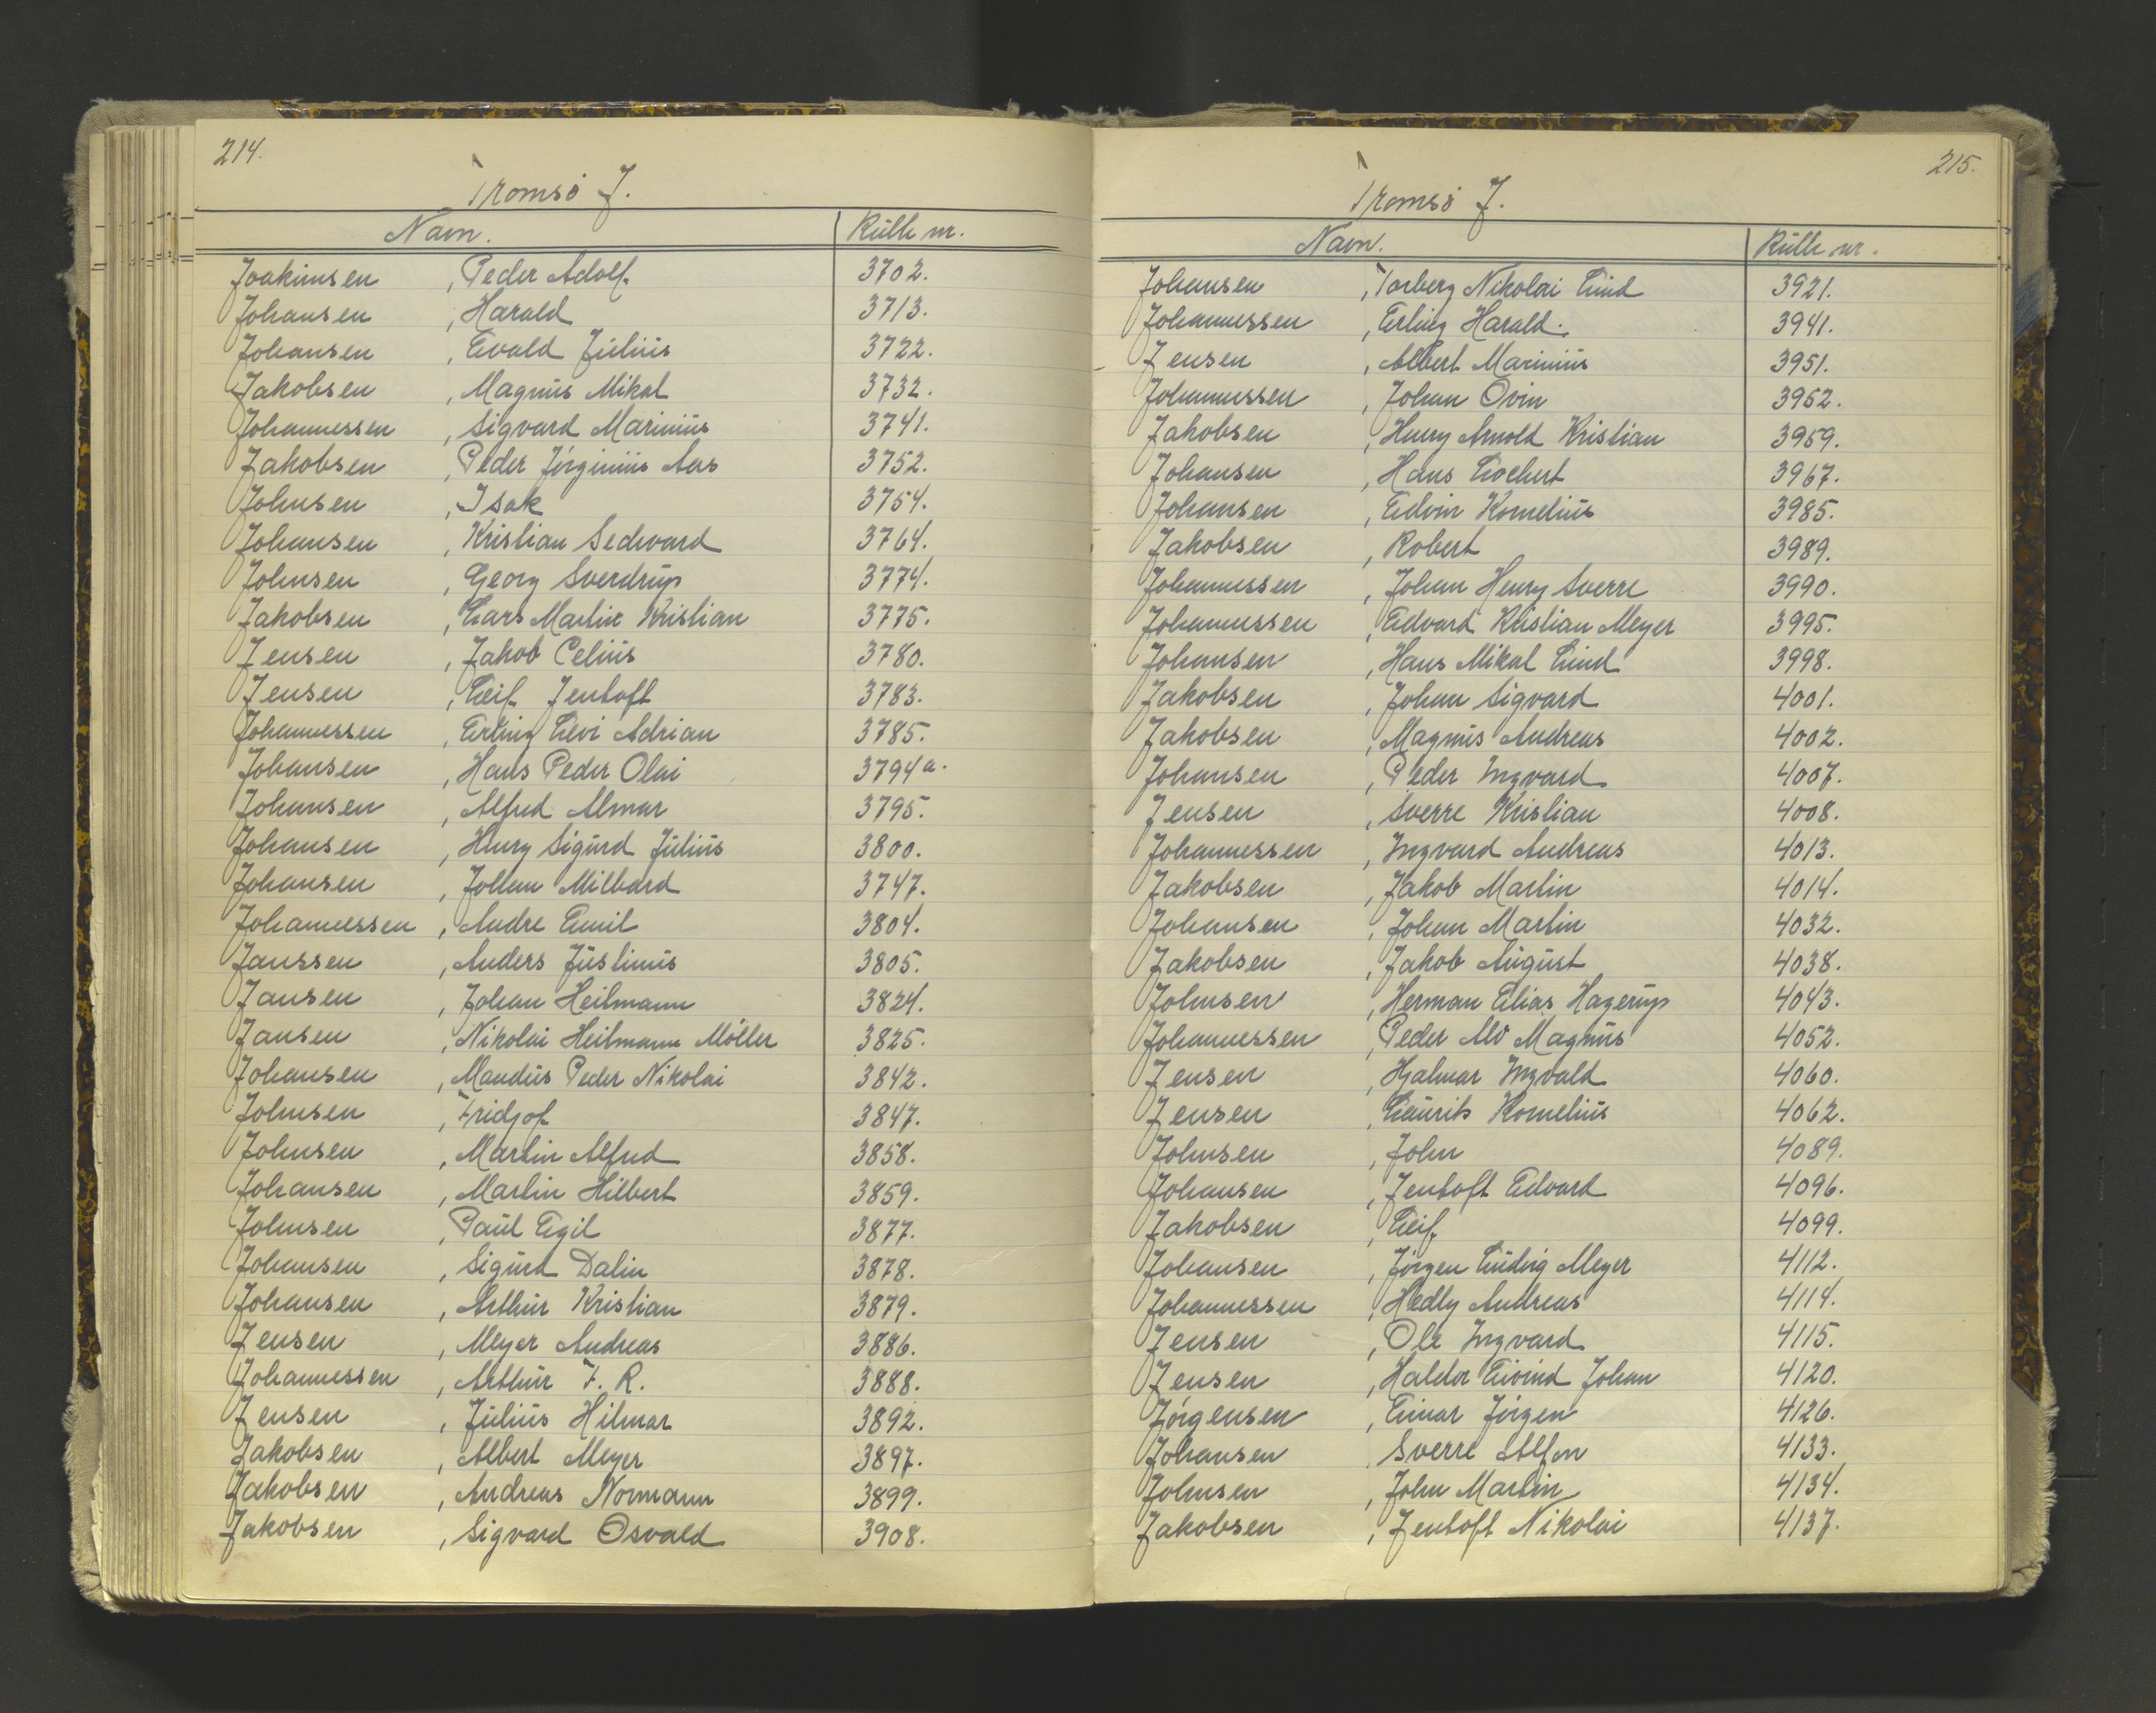 214.
Tromsø J.
Navn. Rulle nr.
Joakimsen , Peder Adolf. 3702.
Johansen , Harald 3713.
Johansen , Evald Julius 3722.
Jakobsen , Magnus Mikal 3732.
Johannessen , Sigvard Marinius 3741.
Jakobsen , Peder Jørginius Aas 3752.
Johnsen , Isak 3754.
Johansen , Kristian Sedevard 3764.
Johnsen , Georg Sverdrup 3774.
Jakobsen , Lars Martin Kristian 3775.
Jensen , Jakob Celius 3780.
Jensen , Leif Jentoft 3783.
Johannessen , Erling Levi Adrian 3785.
Johansen , Hans Peder Olai 3794a.
Johansen , Alfred Almar 3795.
Johansen , Henry Sigurd Julius 3800.
Johansen , Johan Milbard 3747.
Johannessen , Andre Emil 3804.
Janssen , Anders Justinus 3805.
Jansen , Johan Heilmann 3824.
Jansen , Nikolai Heilmann Møller 3825.
Johansen , Mandus Peder Nikolai 3842.
Johnsen , Fridjof 3847.
Johnsen , Martin Alfred 3858.
Johansen , Martin Hilbert 3859.
Johnsen , Paul Egil 3877.
Johansen , Sigurd Dalin 3878.
Johansen , Arthur Kristian 3879.
Jensen , Meyer Andreas 3886.
Johannessen , Arthur F. R. 3888.
Jensen , Julius Hilmar 3892.
Jakobsen , Albert Meyer 3897.
Jakobsen , Andreas Normann 3899.
Jakobsen , Sigvard Osvald 3908.
215.
Tromsø J.
Navn. Rulle nr.
Johansen , Torberg Nikolai Lind 3921.
Johannessen , Erling Harald. 3941.
Jensen , Albert Marinius 3951.
Johannessen , Johan Ovin 3952.
Jakobsen , Henry Arnold Kristian 3959.
Johansen , Hans Lochert 3967.
Johansen , Edvin Kornelius 3985.
Jakobsen , Robert 3989.
Johannessen , Johan Henry Sverre 3990.
Johannessen , Edvard Kristian Meyer 3995.
Johansen , Hans Mikal Lind 3998.
Jakobsen , Johan Sigvard 4001.
Jakobsen , Magnus Andreas 4002.
Johansen , Peder Ingvard 4007.
Jensen , Sverre Kristian 4008.
Johannessen , Ingvard Andreas 4013.
Jakobsen , Jakob Martin 4014.
Johansen , Johan Martin 4032.
Jakobsen , Jakob August 4038.
Johnsen , Herman Elias Hagerup 4043.
Johannessen , Peder Alv Magnus 4052.
Jensen , Hjalmar Ingvald 4060.
Jensen , Laurits Kornelius 4062.
Johnsen , John 4089.
Johansen , Jentoft Edvard 4096.
Jakobsen , Leif 4099.
Johansen , Jørgen Ludvig Meyer 4112.
Johannessen , Hedly Andreas 4114.
Jensen , Ole Ingvard 4115.
Jensen , Haldor Eivind Johan 4120.
Jørgensen , Einar Jørgen 4126.
Johansen , Sverre Alfon 4133.
Johnsen , John Martin 4134.
Jakobsen , Jentoft Nikolai 4137.